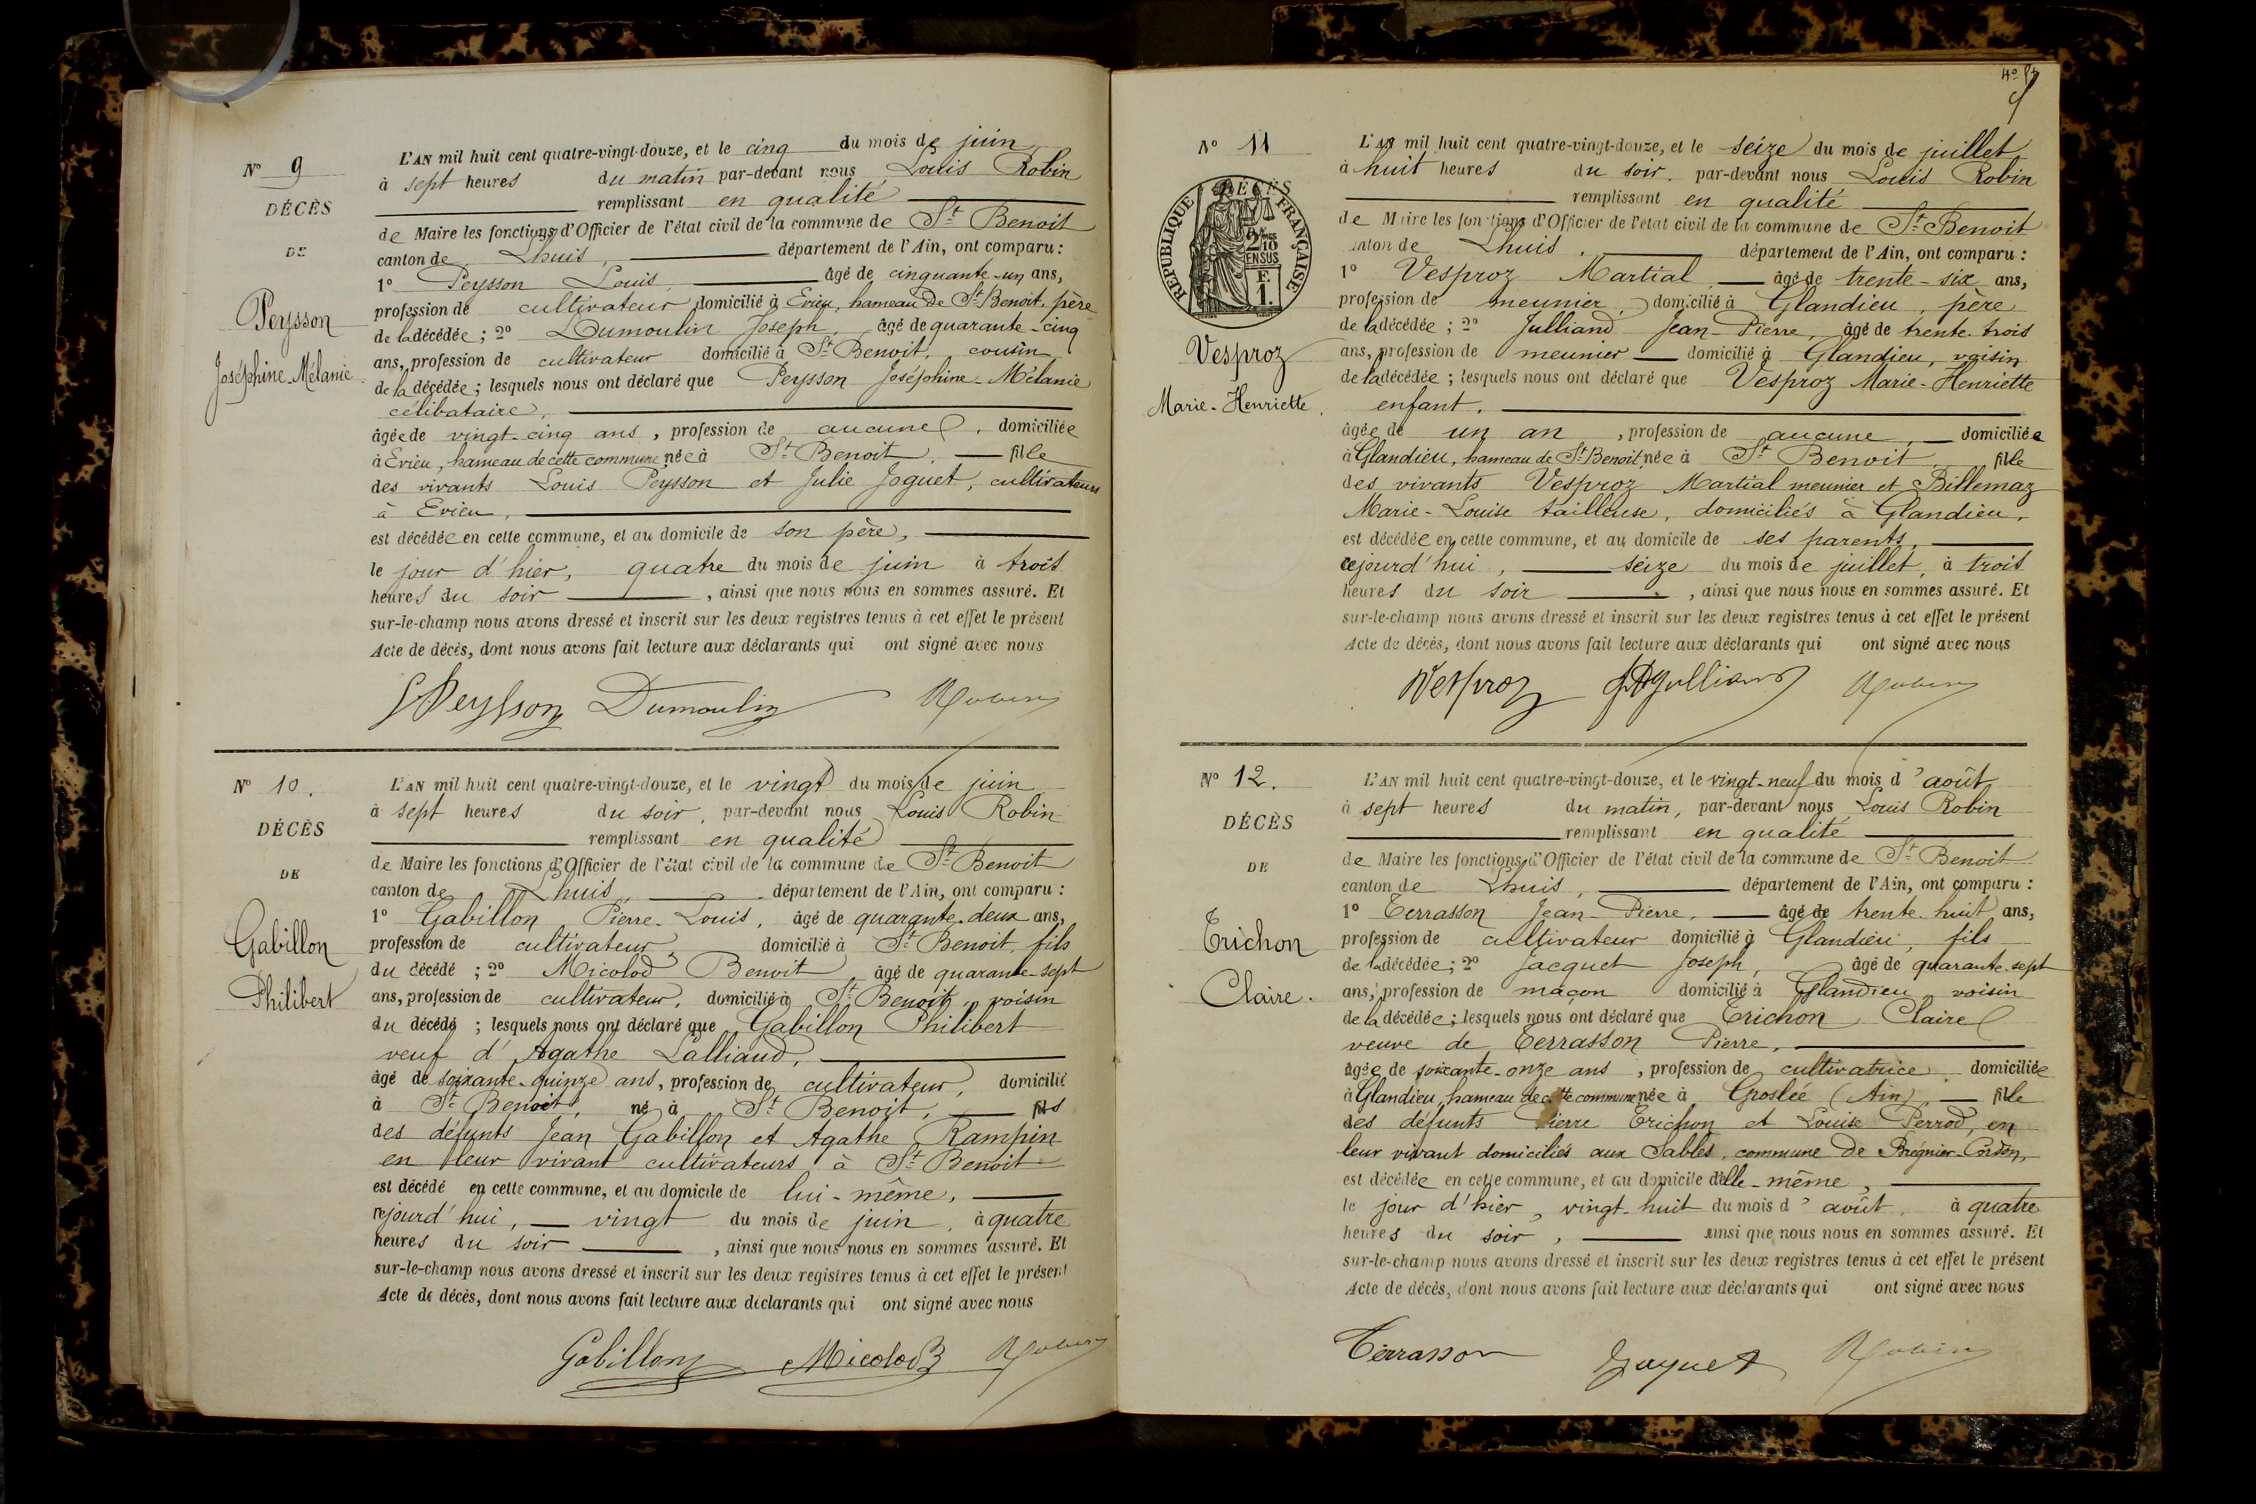 N° 9
DÉCÈS
DE
Peysson
Joséphine-Mélanie
L'AN mil huit cent quatre-vingt-douze, et le cinq du mois de juin
à sept heures du matin par-devant nous Louis Robin
remplissant en qualité
de Maire les fonctions d'Officier de l'état civil de la commune de St Benoit
canton de Lhuis, département de l'Ain, ont comparu :
1° Peysson Louis, âgé de cinquante-un ans,
profession de cultivateur domicilié à Evieu, hameau de St Benoit, père
de la décédée ; 2° Dumoulin Joseph, âgé de quarante-cinq
ans, profession de cultivateur domicilié à St Benoit, cousin
de la décédée ; lesquels nous ont déclaré que Peysson Joséphine-Mélanie
célibataire,
âgée de vingt-cinq ans, profession de aucune, domiciliée
à Evieu, hameau de cette commune née à St Benoit, fille
des vivants Louis Peysson et Julie Joguet, cultivateurs
à Evieu,
est décédée en cette commune, et au domicile de son père,
le jour d'hier, quatre du mois de juin à trois
heures du soir, ainsi que nous nous en sommes assuré. Et
sur-le-champ nous avons dressé et inscrit sur les deux registres tenus à cet effet le présent
Acte de décès, dont nous avons fait lecture aux déclarants qui ont signé avec nous
Peysson Dumoulin Robin
N° 10.
DÉCÈS
DE
Gabillon
Philibert
L'AN mil huit cent quatre-vingt-douze, et le vingt du mois de juin
à sept heures du soir, par-devant nous Louis Robin
remplissant en qualité
de Maire les fonctions d'Officier de l'état civil de la commune de St Benoit
canton de Lhuis, département de l'Ain, ont comparu :
1° Gabillon Pierre-Louis, âgé de quarante-deux ans,
profession de cultivateur, domicilié à St Benoit, fils
du décédé ; 2° Micolod Benoit, âgé de quarante-sept
ans, profession de cultivateur, domicilié à St Benoit, voisin
du décédé ; lesquels nous ont déclaré que Gabillon Philibert
veuf d'Agathe Lalliand,
âgé de soixante-quinze ans, profession de cultivateur, domicilié
à St Benoit, né à St Benoit, fils
des défunts Jean Gabillon et Agathe Rampin
en leur vivant cultivateurs à St Benoit
est décédé en cette commune, et au domicile de lui-même,
cejourd'hui, vingt du mois de juin, à quatre
heures du soir, ainsi que nous nous en sommes assuré. Et
sur-le-champ nous avons dressé et inscrit sur les deux registres tenus à cet effet le présent
Acte de décès, dont nous avons fait lecture aux déclarants qui ont signé avec nous
Gabillon Micolod Robin
N° 11
DÉCÈS
RÉPUBLIQUE FRANÇAISE
2/10 EN SUS
F. 1.
Vesproz
Marie-Henriette.
L'AN mil huit cent quatre-vingt-douze, et le seize du mois de juillet
à huit heures du soir, par-devant nous Louis Robin
remplissant en qualité
de Maire les fonctions d'Officier de l'état civil de la commune de St Benoit
canton de Lhuis, département de l'Ain, ont comparu :
1° Vesproz Martial, âgé de trente-six ans,
profession de meunier, domicilié à Glandieu, père
de la décédée ; 2° Julliand Jean-Pierre, âgé de trente-trois
ans, profession de meunier domicilié à Glandieu, voisin
de la décédée ; lesquels nous ont déclaré que Vesproz Marie-Henriette
enfant,
âgée de un an, profession de aucune, domiciliée
à Glandieu, hameau de St Benoit, née à St Benoit fille
des vivants Vesproz Martial meunier et Billemaz
Marie-Louise tailleuse, domiciliés à Glandieu,
est décédée en cette commune, et au domicile de ses parents,
cejourd'hui, seize du mois de juillet, à trois
heures du soir, ainsi que nous nous en sommes assuré. Et
sur-le-champ nous avons dressé et inscrit sur les deux registres tenus à cet effet le présent
Acte de décès, dont nous avons fait lecture aux déclarants qui ont signé avec nous
Vesproz Julliand Robin
N° 12.
DÉCÈS
DE
Trichon
Claire.
L'AN mil huit cent quatre-vingt-douze, et le vingt-neuf du mois d'août
à sept heures du matin, par-devant nous Louis Robin
remplissant en qualité
de Maire les fonctions d'Officier de l'état civil de la commune de St Benoit
canton de Lhuis, département de l'Ain, ont comparu :
1° Terrasson Jean-Pierre, âgé de trente-huit ans,
profession de cultivateur domicilié à Glandieu, fils
de la décédée ; 2° Jacquet Joseph, âgé de quarante-sept
ans, profession de maçon domicilié à Glandieu voisin
de la décédée ; lesquels nous ont déclaré que Trichon Claire
veuve de Terrasson Pierre,
âgée de soixante-onze ans, profession de cultivatrice, domiciliée
à Glandieu, hameau de cette commune née à Groslée (Ain), fille
des défunts Pierre Trichon et Louise Perrod, en
leur vivant domiciliés aux Sables, commune de Brégnier-Cordon,
est décédée en cette commune, et au domicile d'elle-même,
le jour d'hier, vingt-huit du mois d'août, à quatre
heures du soir, ainsi que nous nous en sommes assuré. Et
sur-le-champ nous avons dressé et inscrit sur les deux registres tenus à cet effet le présent
Acte de décès, dont nous avons fait lecture aux déclarants qui ont signé avec nous
Terrasson Jaquet Robin